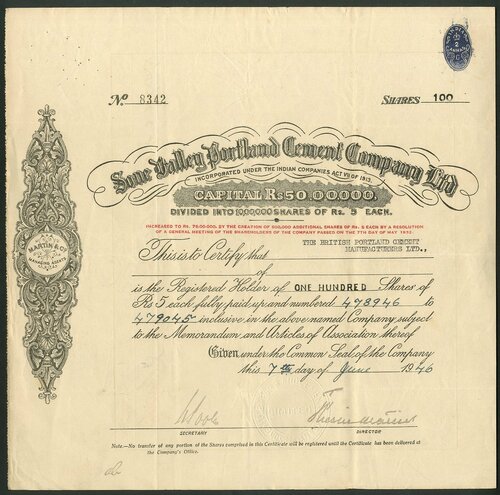 INDIA
2
ANNAS
No 8342
SHARES 100
Sone Valley Portland Cement Company Ltd
INCORPORATED UNDER THE INDIAN COMPANIES ACT VII OF 1913.
CAPITAL Rs 50,00,000,
DIVIDED INTO 10,00,000 SHARES OF Rs. 5 EACH.
INCREASED TO RS. 75,00,000, BY THE CREATION OF 500,000 ADDITIONAL SHARES OF RS. 5 EACH BY A RESOLUTION
OF A GENERAL MEETING OF THE SHAREHOLDERS OF THE COMPANY PASSED ON THE 7TH DAY OF MAY
This is to Certify that THE BRITISH PORTLAND CEMENT
MANUFACTURERS LTD.,
of
is the Registered Holder of ONE HUNDRED Shares of
Rs 5 each fully paid up and numbered 478946 to
479045 inclusive in the above named Company subject
to the Memorandum and Articles of Association thereof
Given under the Common Seal of the Company
this 7th day of June 1946
SECRETARY
DIRECTOR
Note.—No transfer of any portion of the Shares comprised in this Certificate will be registered until the Certificate has been delivered at
the Company's Office.
MARTIN & Co
MANAGING AGENTS